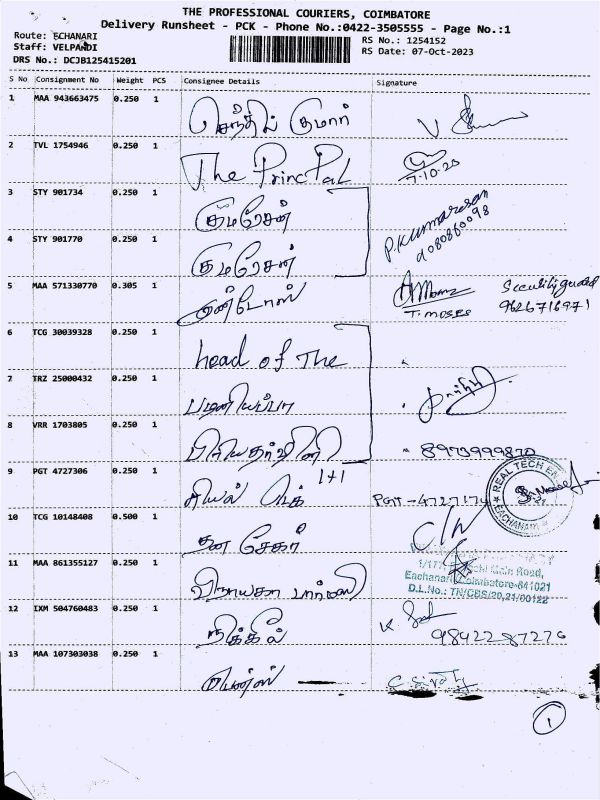 THE PROFESSIONAL COURIERS, COIMBATORE
Delivery Runsheet - PCK - Phone No.:0422-3505555 - Page No.:1
Route: ECHANARI
Staff: VELPANDI
DRS No.: DCJB125415201
RS No.: 1254152
RS Date: 07-Oct-2023
S No Consignment No Weight PCS Consignee Details Signature
1 MAA 943663475 0.250 1 செந்தில் குமார்
2 TVL 1754946 0.250 1 The Principal 7-10-20
3 STY 901734 0.250 1 குமரேசன்
4 STY 901770 0.250 1 குமரேசன் P.Kumaresan
5 MAA 571330770 0.305 1 T. MOSES 9626716971
6 TCG 30039328 0.250 1 head of The
7 TRZ 25000432 0.250 1 பழனியப்பா
8 VRR 1703805 0.250 1 பிரியதர்ஷினி 8973999870
9 PGT 4727306 0.250 1 ரியல் டெக் 1+1 REAL TECH EACHANARI
10 TCG 10148408 0.500 1 தன சேகர்
11 MAA 861355127 0.250 1 விநாயகா பார்மஸி Main Road,
Eachanari, Coimbatore-641021
D.L.No.: TN/CBS/20,21/00122
12 IXM 504760483 0.250 1 நிக்கில் 9842287276
13 MAA 107303038 0.250 1
1